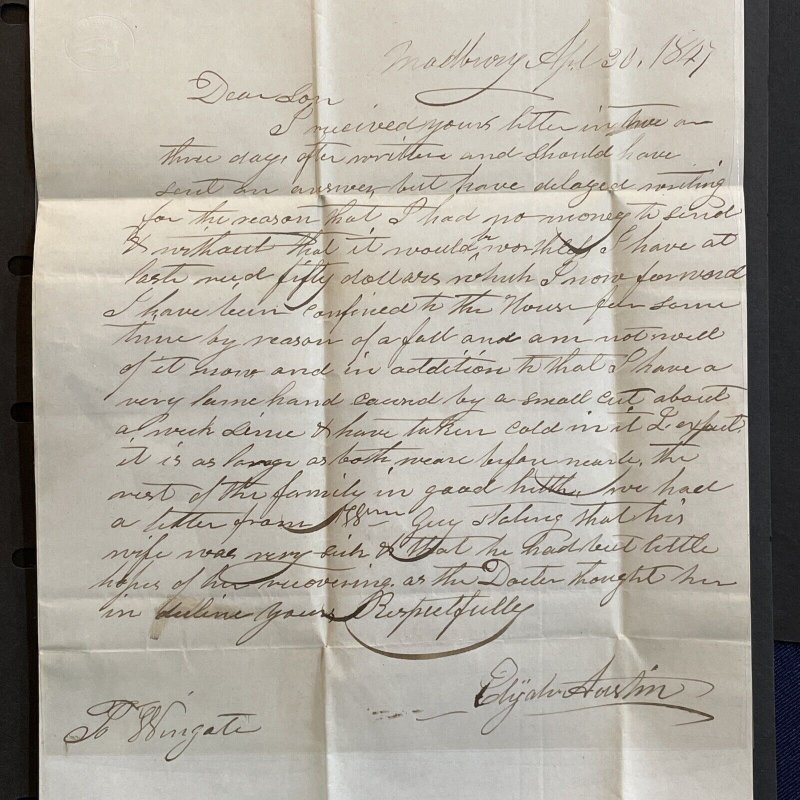 Madbury Apl 30, 1847
Dear Son
I received yours letter in two or
three days after written and should have
sent an answer but have delayed writing
for the reason that I had no money to send
& without that it would be worthless I have at
last recd fifty dollars which I now forward
I have been confined to the House for some
time by reason of a fall and am not well
of it now and in addition to that I have a
very lame hand caused by a small cut about
a week since & have taken cold in it I expect
it is as large as both weare before nearle, the
rest of the family in good helth, we had
a letter from Wm Guy stating that his
wife was very sick & that he had but little
hopes of her recovering as the Docter thought her
in decline yours Respectfully
Elijah Austin
To Wingate